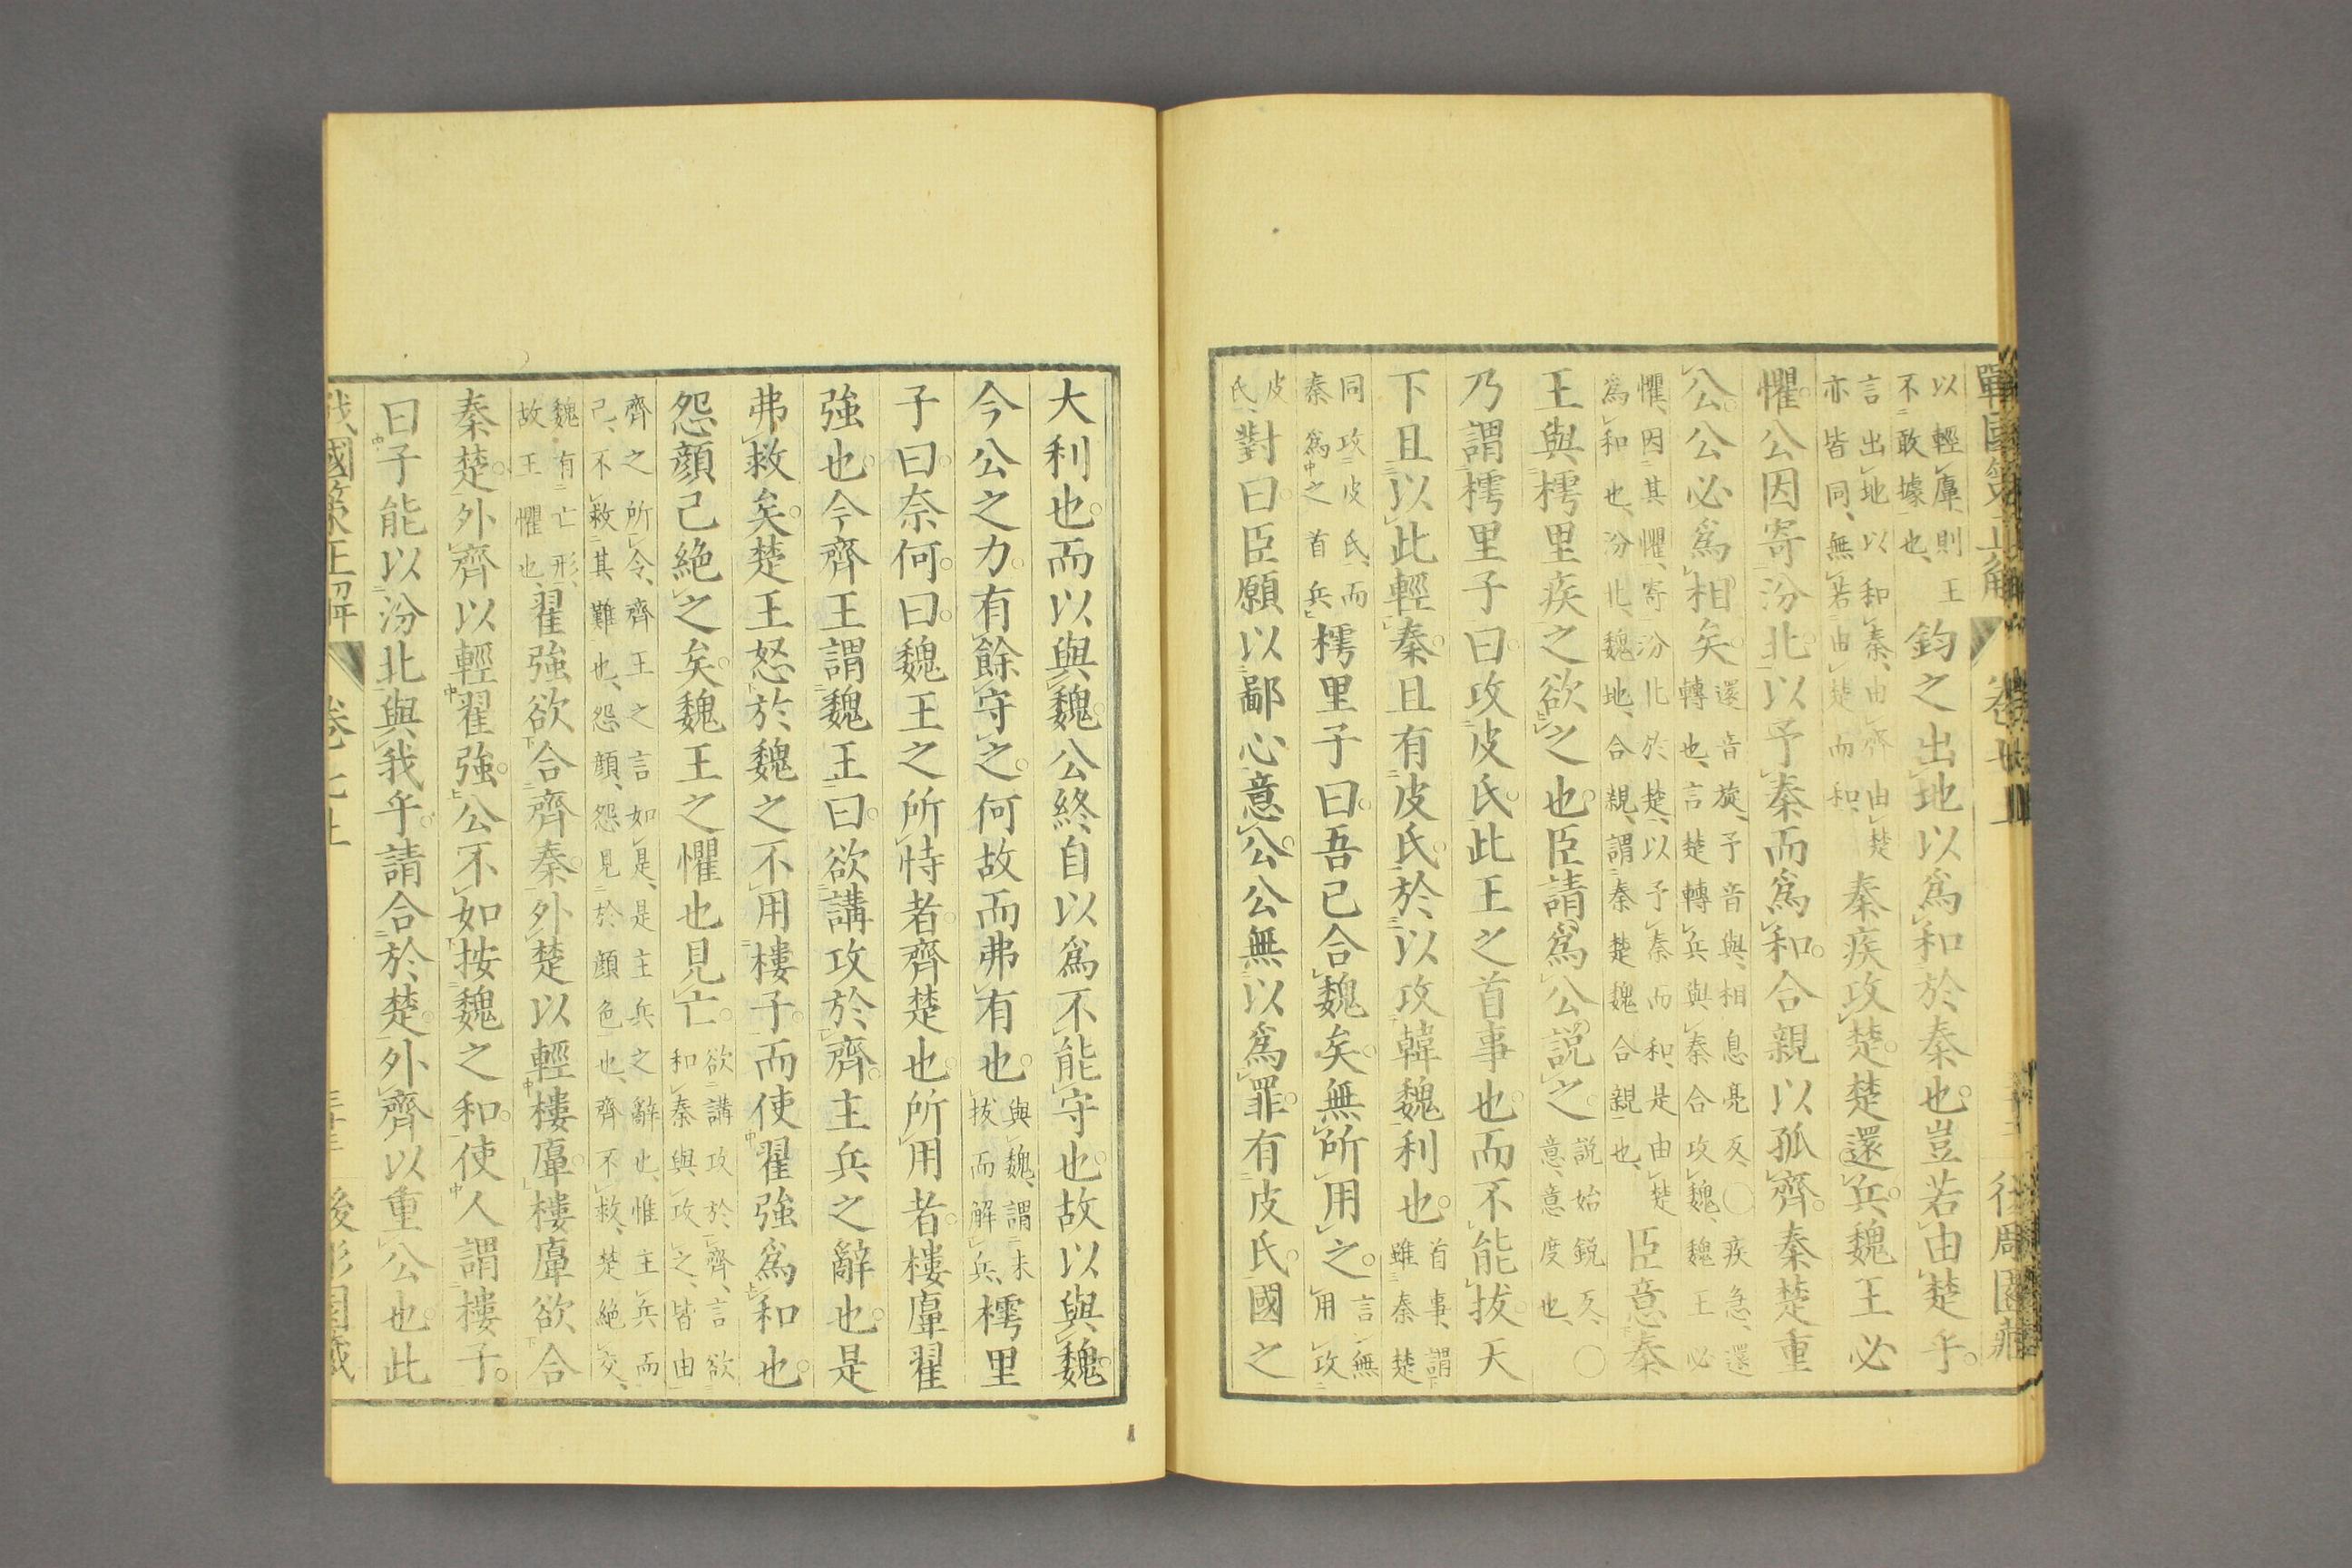 戰國策正解 卷七上 後凋園藏
以輕廬則王不敢據也、鈞之出地以爲和於秦也。豈若由楚乎。
言出地以和秦、由齊由楚亦皆同、無若由楚而和、秦疾攻楚。楚還兵。魏王必
懼。公因寄汾北以予秦而爲和。合親以孤齊。秦楚重
公。公必爲相矣。還音旋、予音與、相息亮反、〇疾急、還轉也、言楚轉兵與秦合攻魏、魏王必
懼、因其懼、寄汾北於楚、以予秦而和、是由楚爲和也、汾北、魏地、合親、謂秦楚魏合親也、臣意秦
王與樗里疾之欲之也。臣請爲公說之。説始鋭反、〇意、意度也、
乃謂樗里子曰。攻皮氏。此王之首事也。而不能拔。天
下且以此輕秦。且有皮氏。於以攻韓魏利也。首事、謂雖秦楚
同攻皮氏、而秦爲之首兵、樗里子曰。吾已合魏矣。無所用之。言無用攻
皮氏、對曰。臣願以鄙心意公。公無以爲罪。有皮氏。國之
大利也。而以與魏。公終自以爲不能守也。故以與魏。
今公之力。有餘守之。何故而弗有也。與魏、謂未拔而解兵、樗里
子曰。奈何。曰。魏王之所恃者。齊楚也。所用者。樓廬翟
強也。今齊王謂魏王曰。欲講攻於齊。主兵之辭也。是
弗救矣。楚王怒於魏之不用樓子。而使翟強爲和也。
怨顔已絶之矣。魏王之懼也見亡。欲講攻於齊、言欲和秦與攻之、皆由
齊之所令、齊王之言如是、是主兵之辭也、惟主兵而己、不救其難也、怨顔、怨見於顔色也、齊不救、楚絶交、
魏有亡形、故王懼也、翟強欲合齊秦。外楚以輕樓廬。樓廬欲合
秦楚。外齊以輕翟強。公不如按魏之和。使人謂樓子。
曰子能以汾北與我乎。請合於楚。外齊以重公也。此
戰國策正解 卷七上 後凋園藏